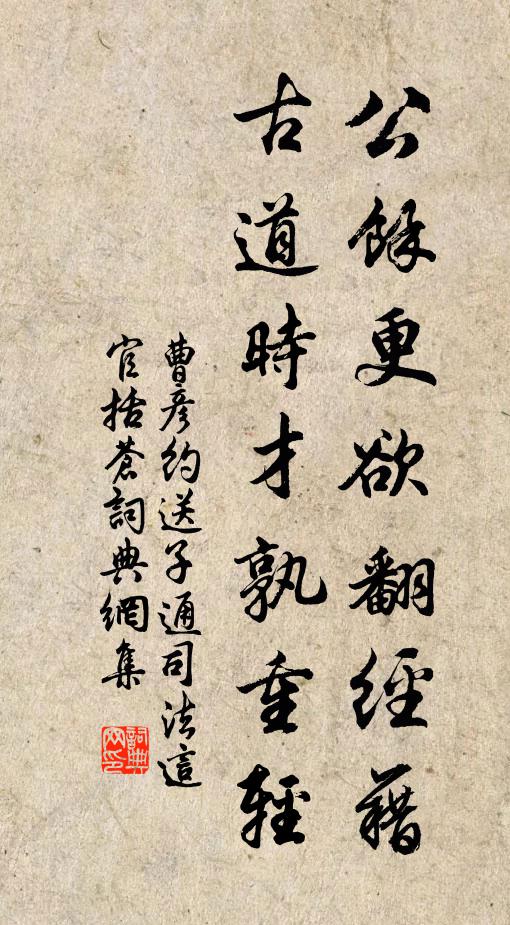 公餘更欲翻經籍
古道時才孰重輕
曹彥約送子通司法這
官括蒼詞典網集
詞典網印